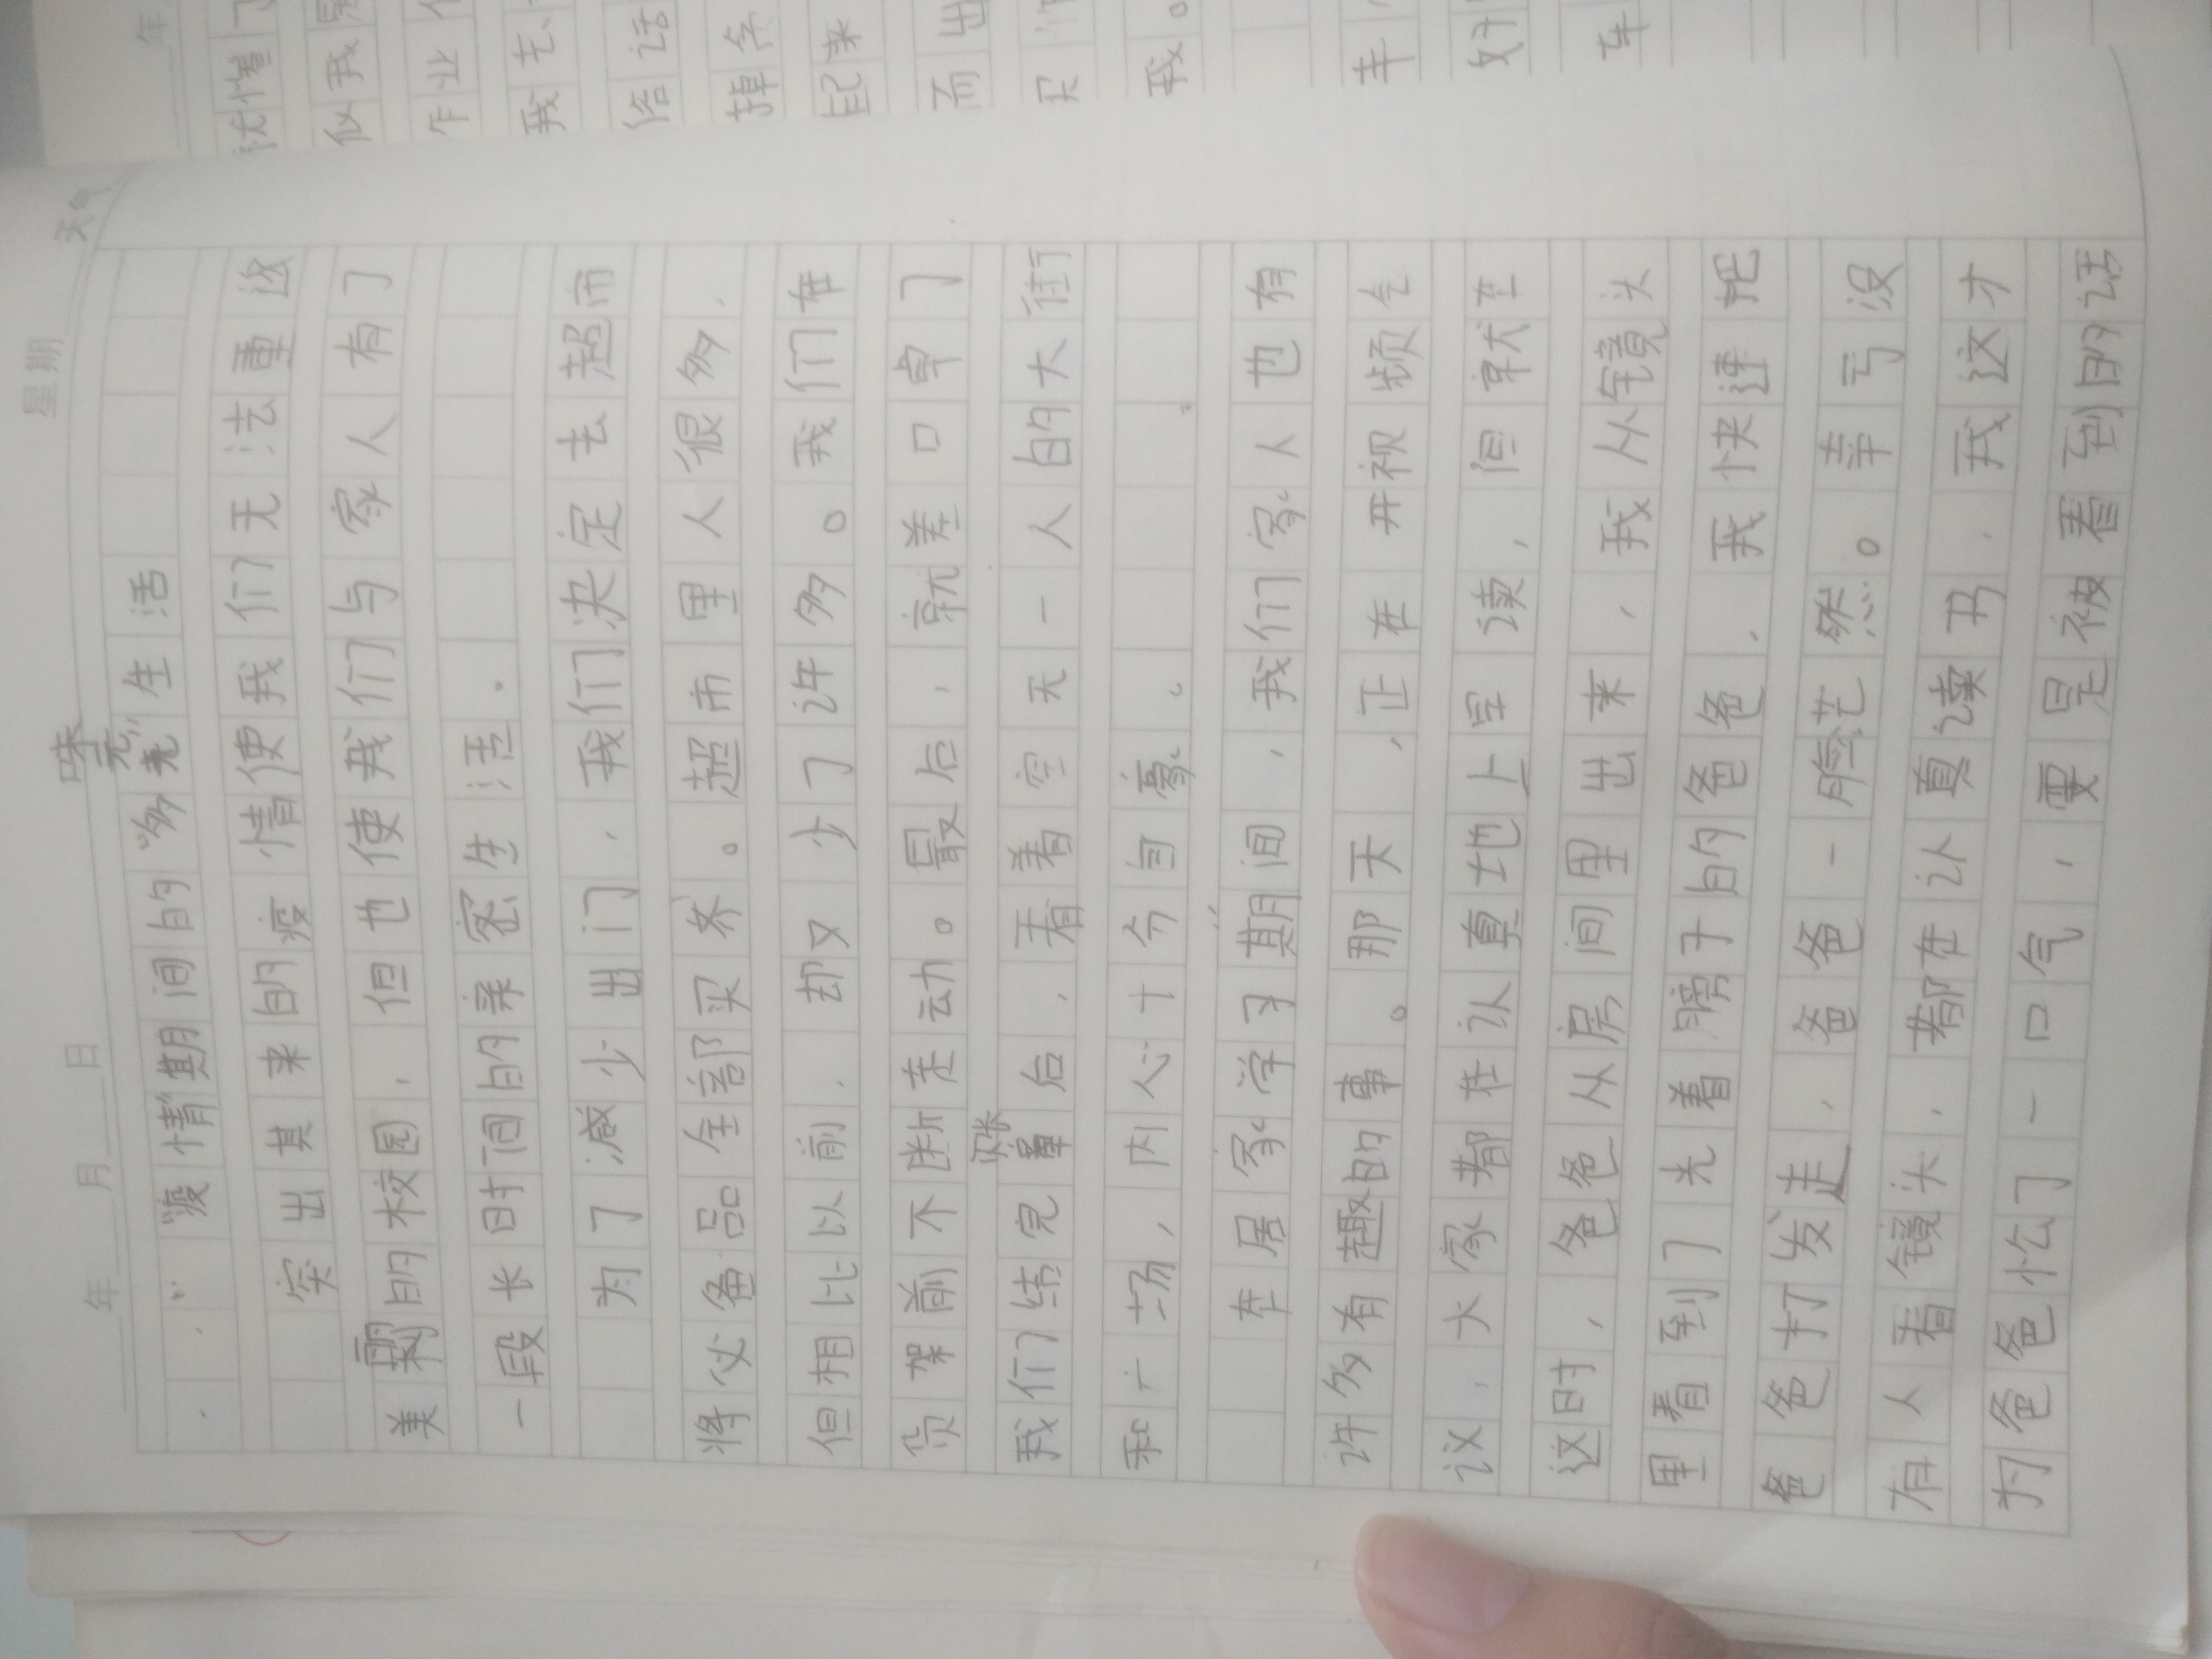 年 月 日 星期 天气
“疫情期间的“多味”生活
突出其来的疫情使我们无法重返
美丽的校园,但也使我们与家人有了
一段长时间的亲密生活.
为了减少出门,我们决定去超市
将必备品全部买齐。超市里人很多,
但相比以前,却又少了许多。我们在
货架前不断走动。最后,就差口罩了
我们结完账后,看着空无一人的大街
和广场,内心十分自豪。
在居家学习期间,我们家人也有
许多有趣的事。那天,正在开视频会
议,大家都在认真地上网课,但就在
这时,爸爸从房间里出来,我从镜头
里看到了光着膀子的爸爸,我快速把
爸爸打发走,爸爸一脸茫然。幸亏没
有人看镜头,都在认真读书,我这才
为爸爸松了一口气,要是被看到的话
年
我
作业
我无
给话
掉
记来
而出
只
我。
车
好
车